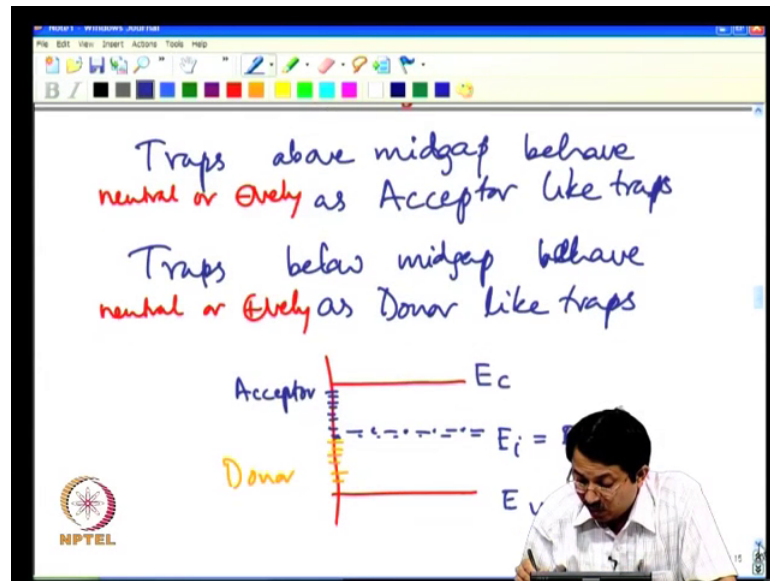 Note1 - Windows Journal
File Edit View Insert Actions Tools Help
B I
Traps above midgap behave
neutral or ⊖vely as Acceptor like traps
Traps below midgap behave
neutral or ⊕vely as Donor like traps
Ec
Acceptor
Ei =
Donor
Ev
NPTEL
15